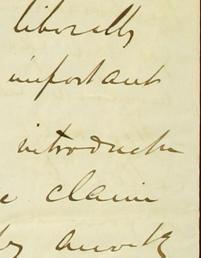 liberally
important
introduction
claim